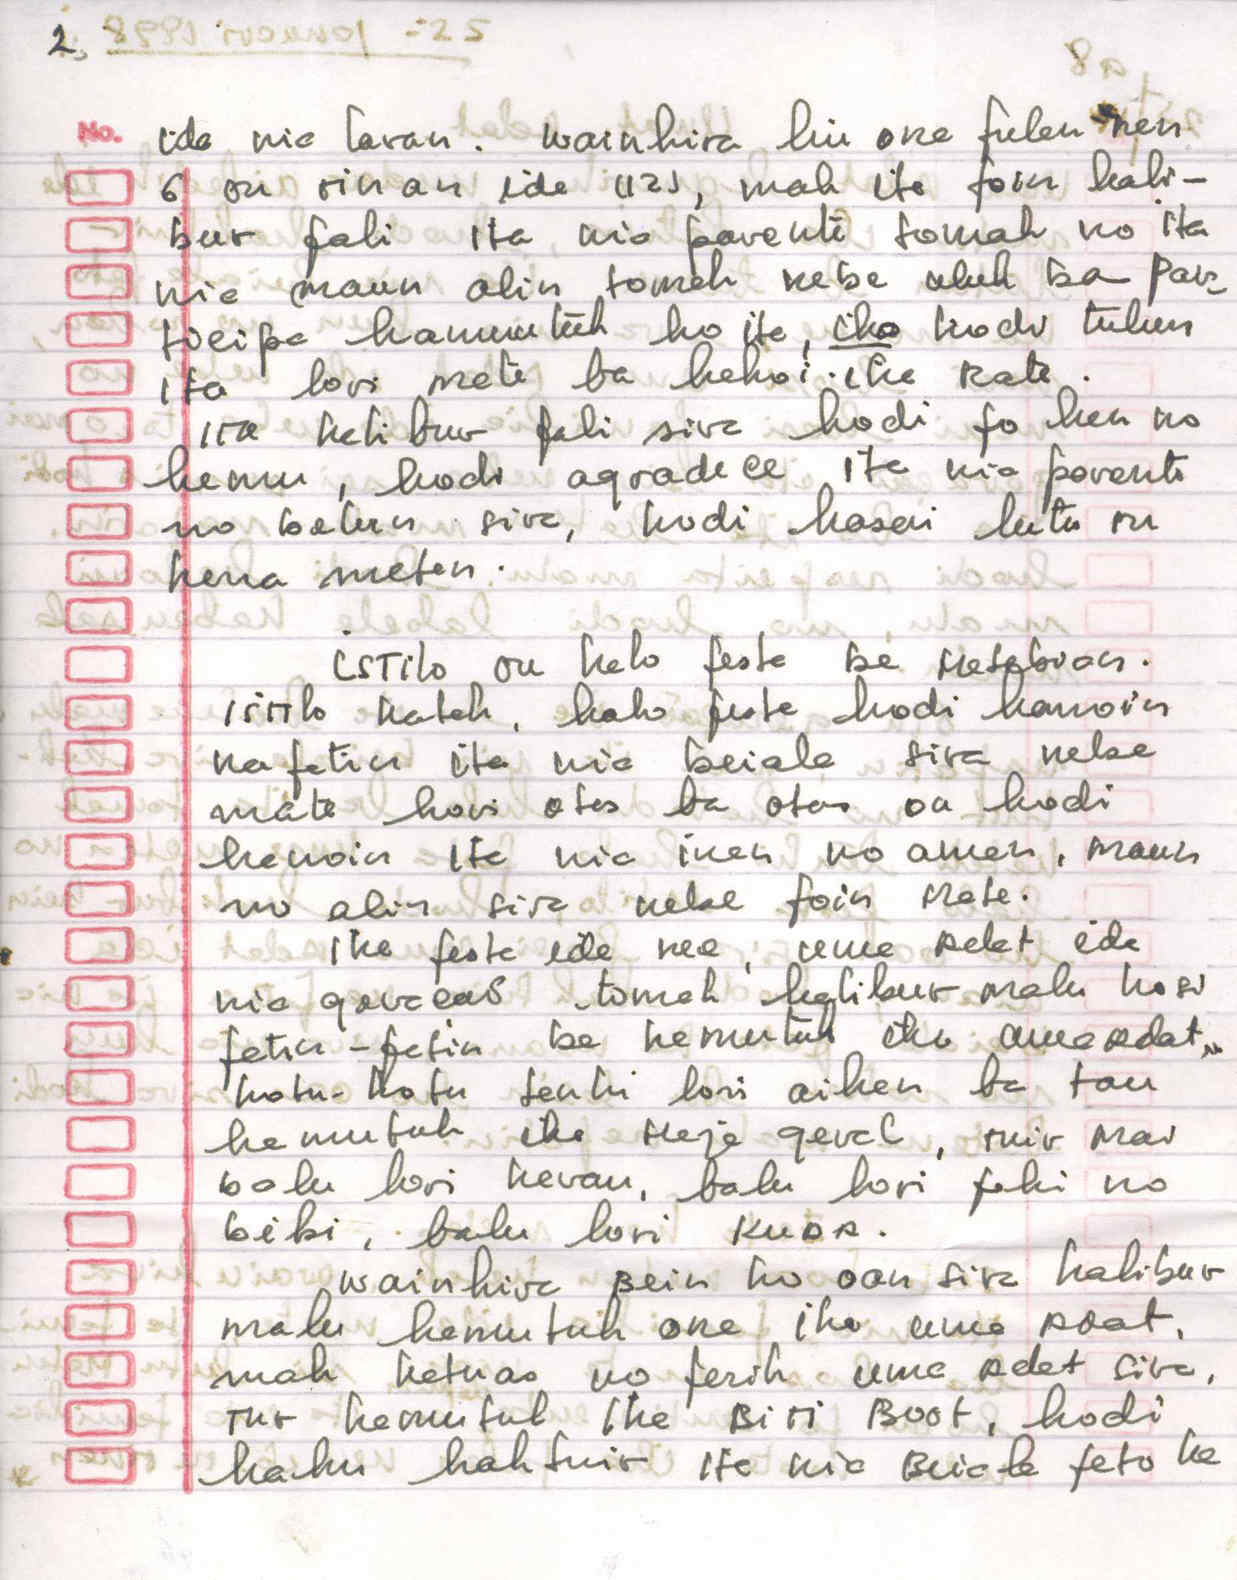 2,
No. ida nia laran. wainhira liu ona fulan nen
6 ou tinan ida (12), mak ita foin hali-
bur fali ita nia parenti tomak no ita
nia maun alin tomak nebe uluk ba par-
ticipa hamutuk ho ita, iha hodi tulun
ita lori mate ba hakoi iha rate.
ita halibur fali sira hodi fo han no
hemu, hodi agradece ita nia parenti
no belun sira, hodi hasai lutu ou
hena metan.
iSTilo ou halo festa ba matebian.
istilo katak, halo festa hodi hanoin
nafatin ita nia beiala sira nebe
mate hori otas ba otas ou hodi
hanoin ita nia inan no aman, maun
no alin sira nebe foin mate.
iha festa ida nee, uma adat ida
nia geracaõ tomak halibur malu hosi
fatin-fatin ba hamutuk iha uma adat,
hotu-hotu tenki lori aihan ba tau
hamutuk iha meja geral, mir mai
balu lori karau, balu lori fahi no
bibi, balu lori KUDA.
wainhira Bein ho oan sira halibur
malu hamutuk ona iha uma adat,
mak katuas no ferik uma adat sira,
tur hamutuk iha Biti Boot, hodi
hahu hahtuir ita nia Beiala feto ka